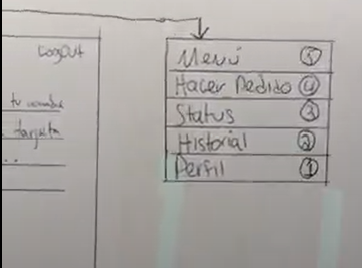 LogOut
tu nombre
tarjeta
...
Menú 5
Hacer Pedido 4
Status 3
Historial 2
Perfil 1